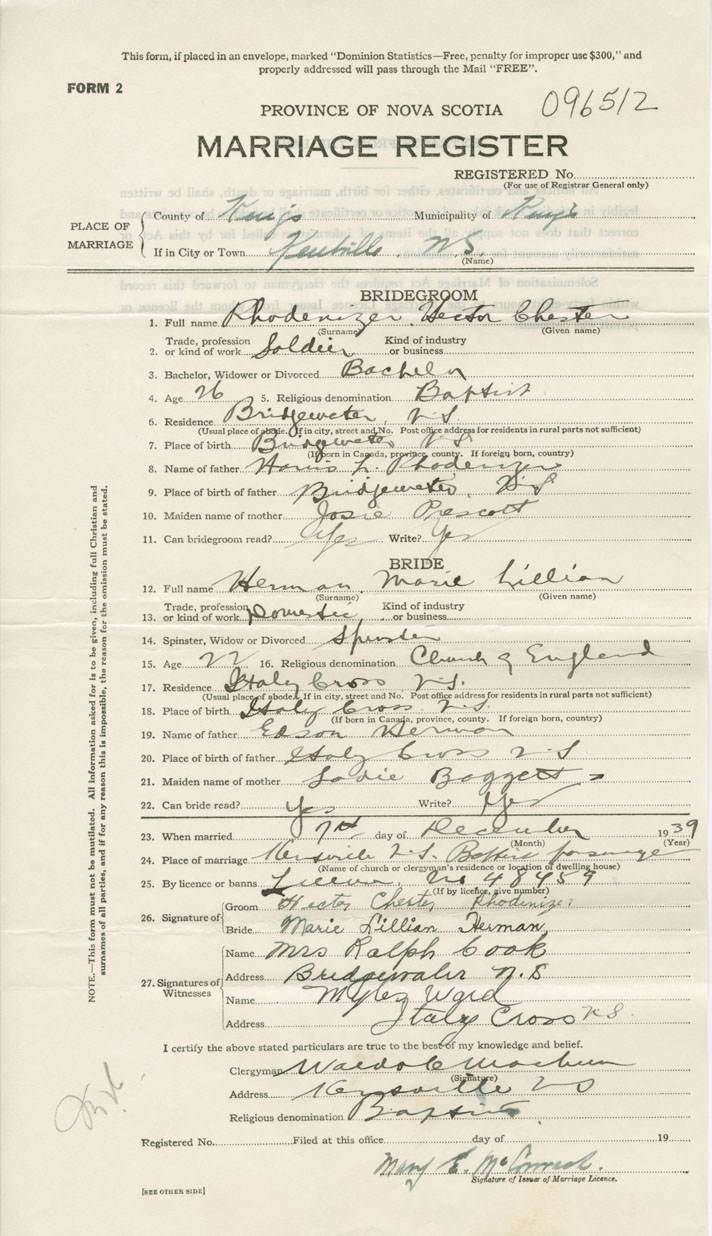 This form, if placed in an envelope, marked "Dominion Statistics—Free, penalty for improper use $300," and
properly addressed will pass through the Mail "FREE".
FORM 2
PROVINCE OF NOVA SCOTIA 096512
MARRIAGE REGISTER
REGISTERED No.
(For use of Registrar General only)
PLACE OF MARRIAGE
County of Kings Municipality of Kings
If in City or Town Kentville N.S.
(Name)
BRIDEGROOM
1. Full name Rhodenizer Hector Chester
(Surname) (Given name)
2. Trade, profession or kind of work Soldier Kind of industry or business
3. Bachelor, Widower or Divorced Bachelor
4. Age 26 5. Religious denomination Baptist
6. Residence Bridgewater, N.S.
(Usual place of abode. If in city, street and No. Post office address for residents in rural parts not sufficient)
7. Place of birth Bridgewater N.S.
(If born in Canada, province, county. If foreign born, country)
8. Name of father Harris L. Rhodenizer
9. Place of birth of father Bridgewater, N.S
10. Maiden name of mother Josie Prescott
11. Can bridegroom read? Yes Write? Yes
BRIDE
12. Full name Herman Marie Lillian
(Surname) (Given name)
13. Trade, profession or kind of work Domestic Kind of industry or business
14. Spinster, Widow or Divorced Spinster
15. Age 22 16. Religious denomination Church of England
17. Residence Italy Cross N.S.
(Usual place of abode. If in city, street and No. Post office address for residents in rural parts not sufficient)
18. Place of birth Italy Cross N.S.
(If born in Canada, province, county. If foreign born, country)
19. Name of father Edson Herman
20. Place of birth of father Italy Cross N.S
21. Maiden name of mother Baggett
22. Can bride read? Yes Write? Yes
23. When married 7th day of December 1939
(Month) (Year)
24. Place of marriage Kentville N.S. Baptist parsonage
(Name of church or clergyman's residence or location of dwelling house)
25. By licence or banns License, No 48459
(If by licence, give number)
26. Signature of
Groom Hector Chester Rhodenizer
Bride Marie Lillian Herman
27. Signatures of Witnesses
Name Mrs Ralph Cook
Address Bridgewater N.S
Name Myles Ward
Address Italy Cross N.S.
I certify the above stated particulars are true to the best of my knowledge and belief.
Clergyman Waldo C Machum
(Signature)
Address Kentville N S
Religious denomination Baptist
Registered No. Filed at this office day of 19
Mary E. McConnell.
Signature of Issuer of Marriage Licence.
[SEE OTHER SIDE]
NOTE.—This form must not be mutilated. All information asked for is to be given, including full Christian and
surnames of all parties, and if for any reason this is impossible, the reason for the omission must be stated.